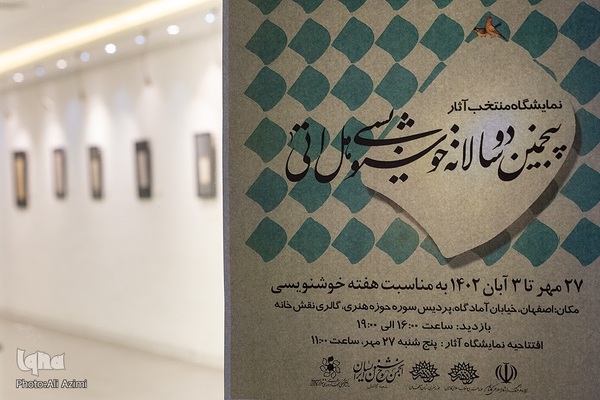 نمایشگاه منتخب آثار
پنجمین دوسالانه خوشنویسی هل اتی
۲۷ مهر تا ۳ آبان ۱۴۰۲ به مناسبت هفته خوشنویسی
مکان: اصفهان، خیابان آمادگاه، پردیس سوره حوزه هنری، گالری نقش خانه
بازدید: ساعت ۱۶:۰۰ الی ۱۹:۰۰
افتتاحیه نمایشگاه آثار: پنج شنبه ۲۷ مهر، ساعت ۱۱:۰۰
انجمن خوشنویسان ایران
iqna
Photo:Ali Azimi